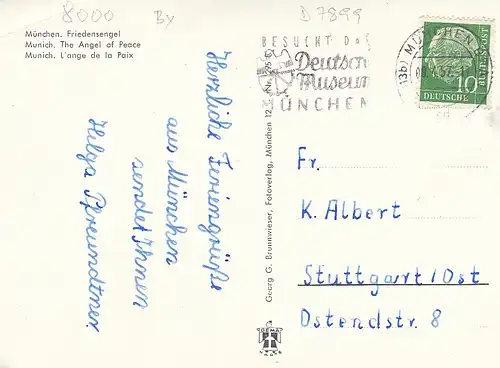 8000
By
D 7899
München. Friedensengel
Munich. The Angel of Peace
Munich. L'ange de la Paix
BESUCHT DAS
Deutsche
Museum
MÜNCHEN
(13b) MÜNCHEN
DEUTSCHE
BUNDESPOST
10
Herzliche Feriengrüße
aus München
sendet Ihnen
Helga Pfreundtner.
Georg G. Brunnwieser, Fotoverlag, München 12,
Fr.
K. Albert
Stuttgart/Ost
Ostendstr. 8